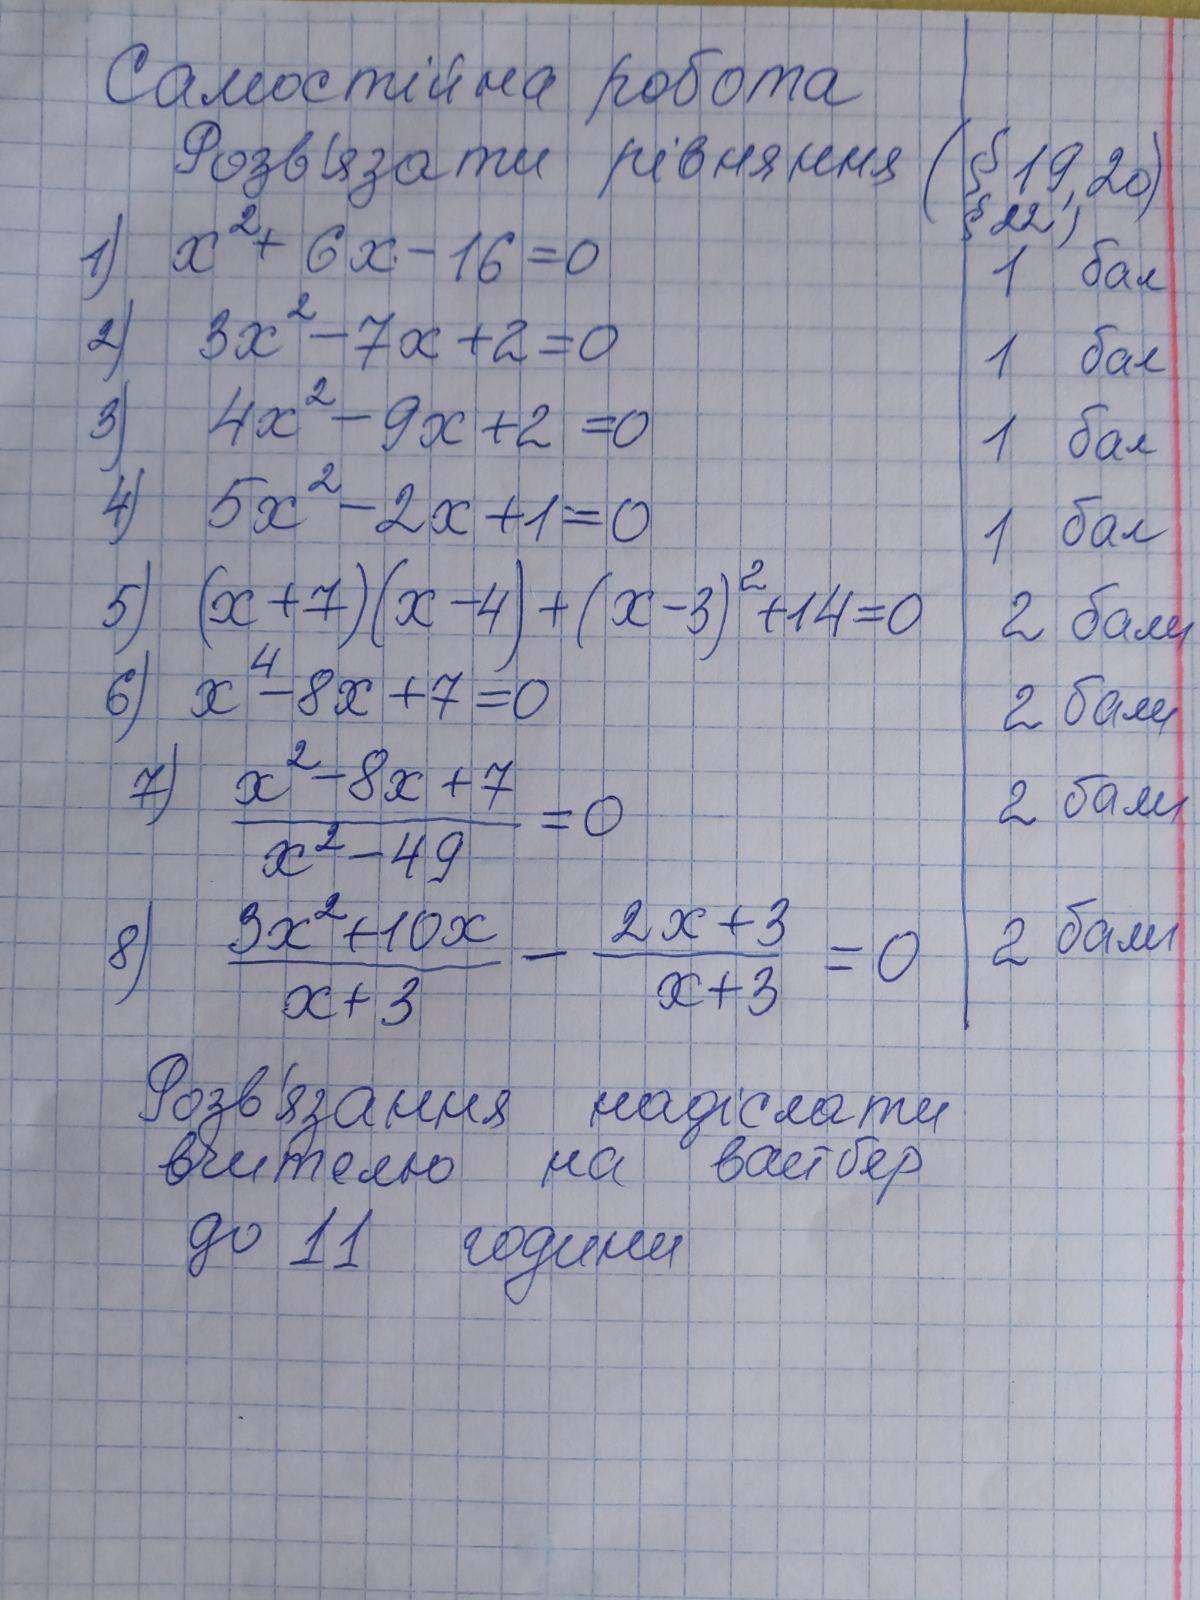 Самостійна робота
Розв'язати рівняння (§ 19, 20)
§ 22)
1) x² + 6x - 16 = 0 1 бал
2) 3x² - 7x + 2 = 0 1 бал
3) 4x² - 9x + 2 = 0 1 бал
4) 5x² - 2x + 1 = 0 1 бал
5) (x + 7)(x - 4) + (x - 3)² + 14 = 0 2 бали
6) x⁴ - 8x + 7 = 0 2 бали
7) (x² - 8x + 7)/(x² - 49) = 0 2 бали
8) (3x² + 10x)/(x + 3) - (2x + 3)/(x + 3) = 0 2 бали
Розв'язання надіслати
вчителю на вайбер
до 11 години